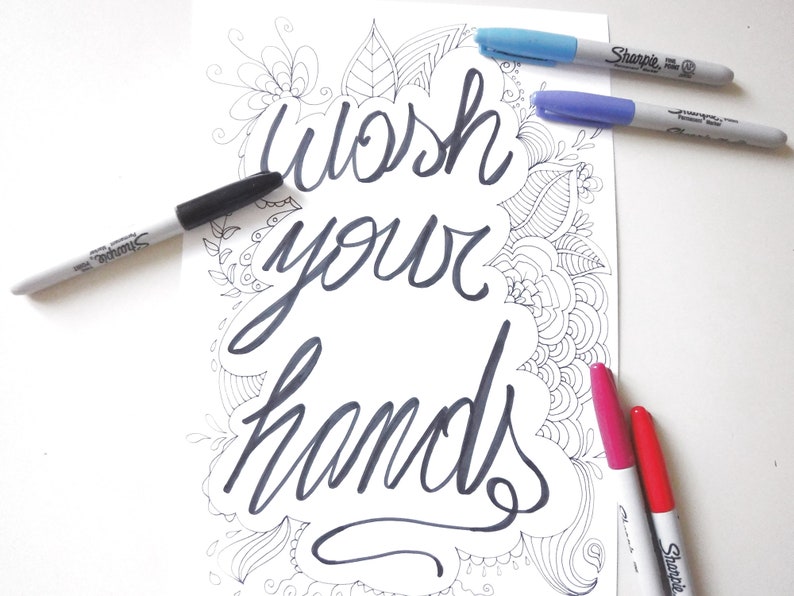 wash
your
hands
Sharpie
FINE POINT
Permanent Marker
AP
Sharpie
Permanent Marker
Sharpie
Permanent Marker
FINE POINT
Sharpie